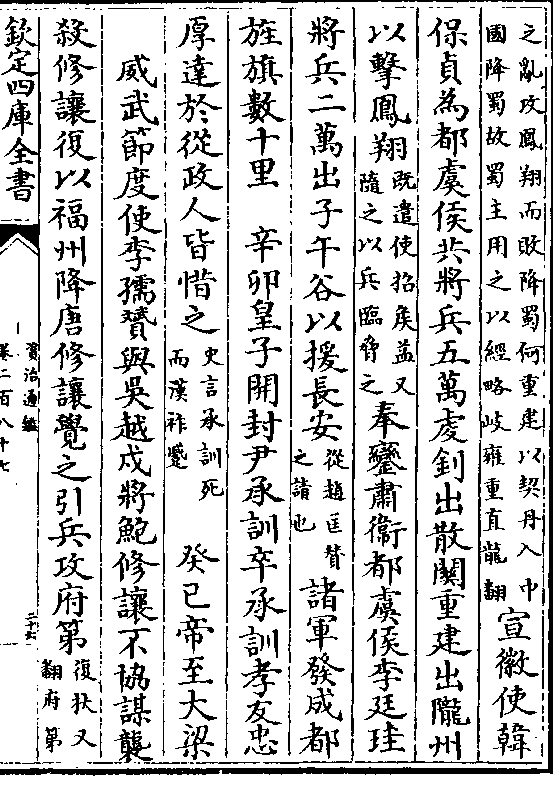 之亂攻鳳翔而敗降蜀何重建以契丹入中
國降蜀故蜀主用之以經略岐雍重直龍翻
宣徽使韓
保貞為都虞侯共將兵五萬虔釗出散關重建出隴州
以擊鳳翔
既遣使招侯益又
隨之以兵臨脅之
奉鑾肅衛都虞侯李廷珪
將兵二萬出子午谷以援長安
從趙匡贊
之請也
諸軍發成都
旌旗數十里 辛卯皇子開封尹承訓卒承訓孝友忠
厚達於從政人皆惜之
史言承訓死
而漢祚蹙
癸巳帝至大梁
威武節度使李孺贇與吳越戍將鮑修讓不協謀襲
殺修讓復以福州降唐修讓覺之引兵攻府第
復扶又
翻府第
欽定四庫全書
資治通鑑
卷二百八十七
二十六